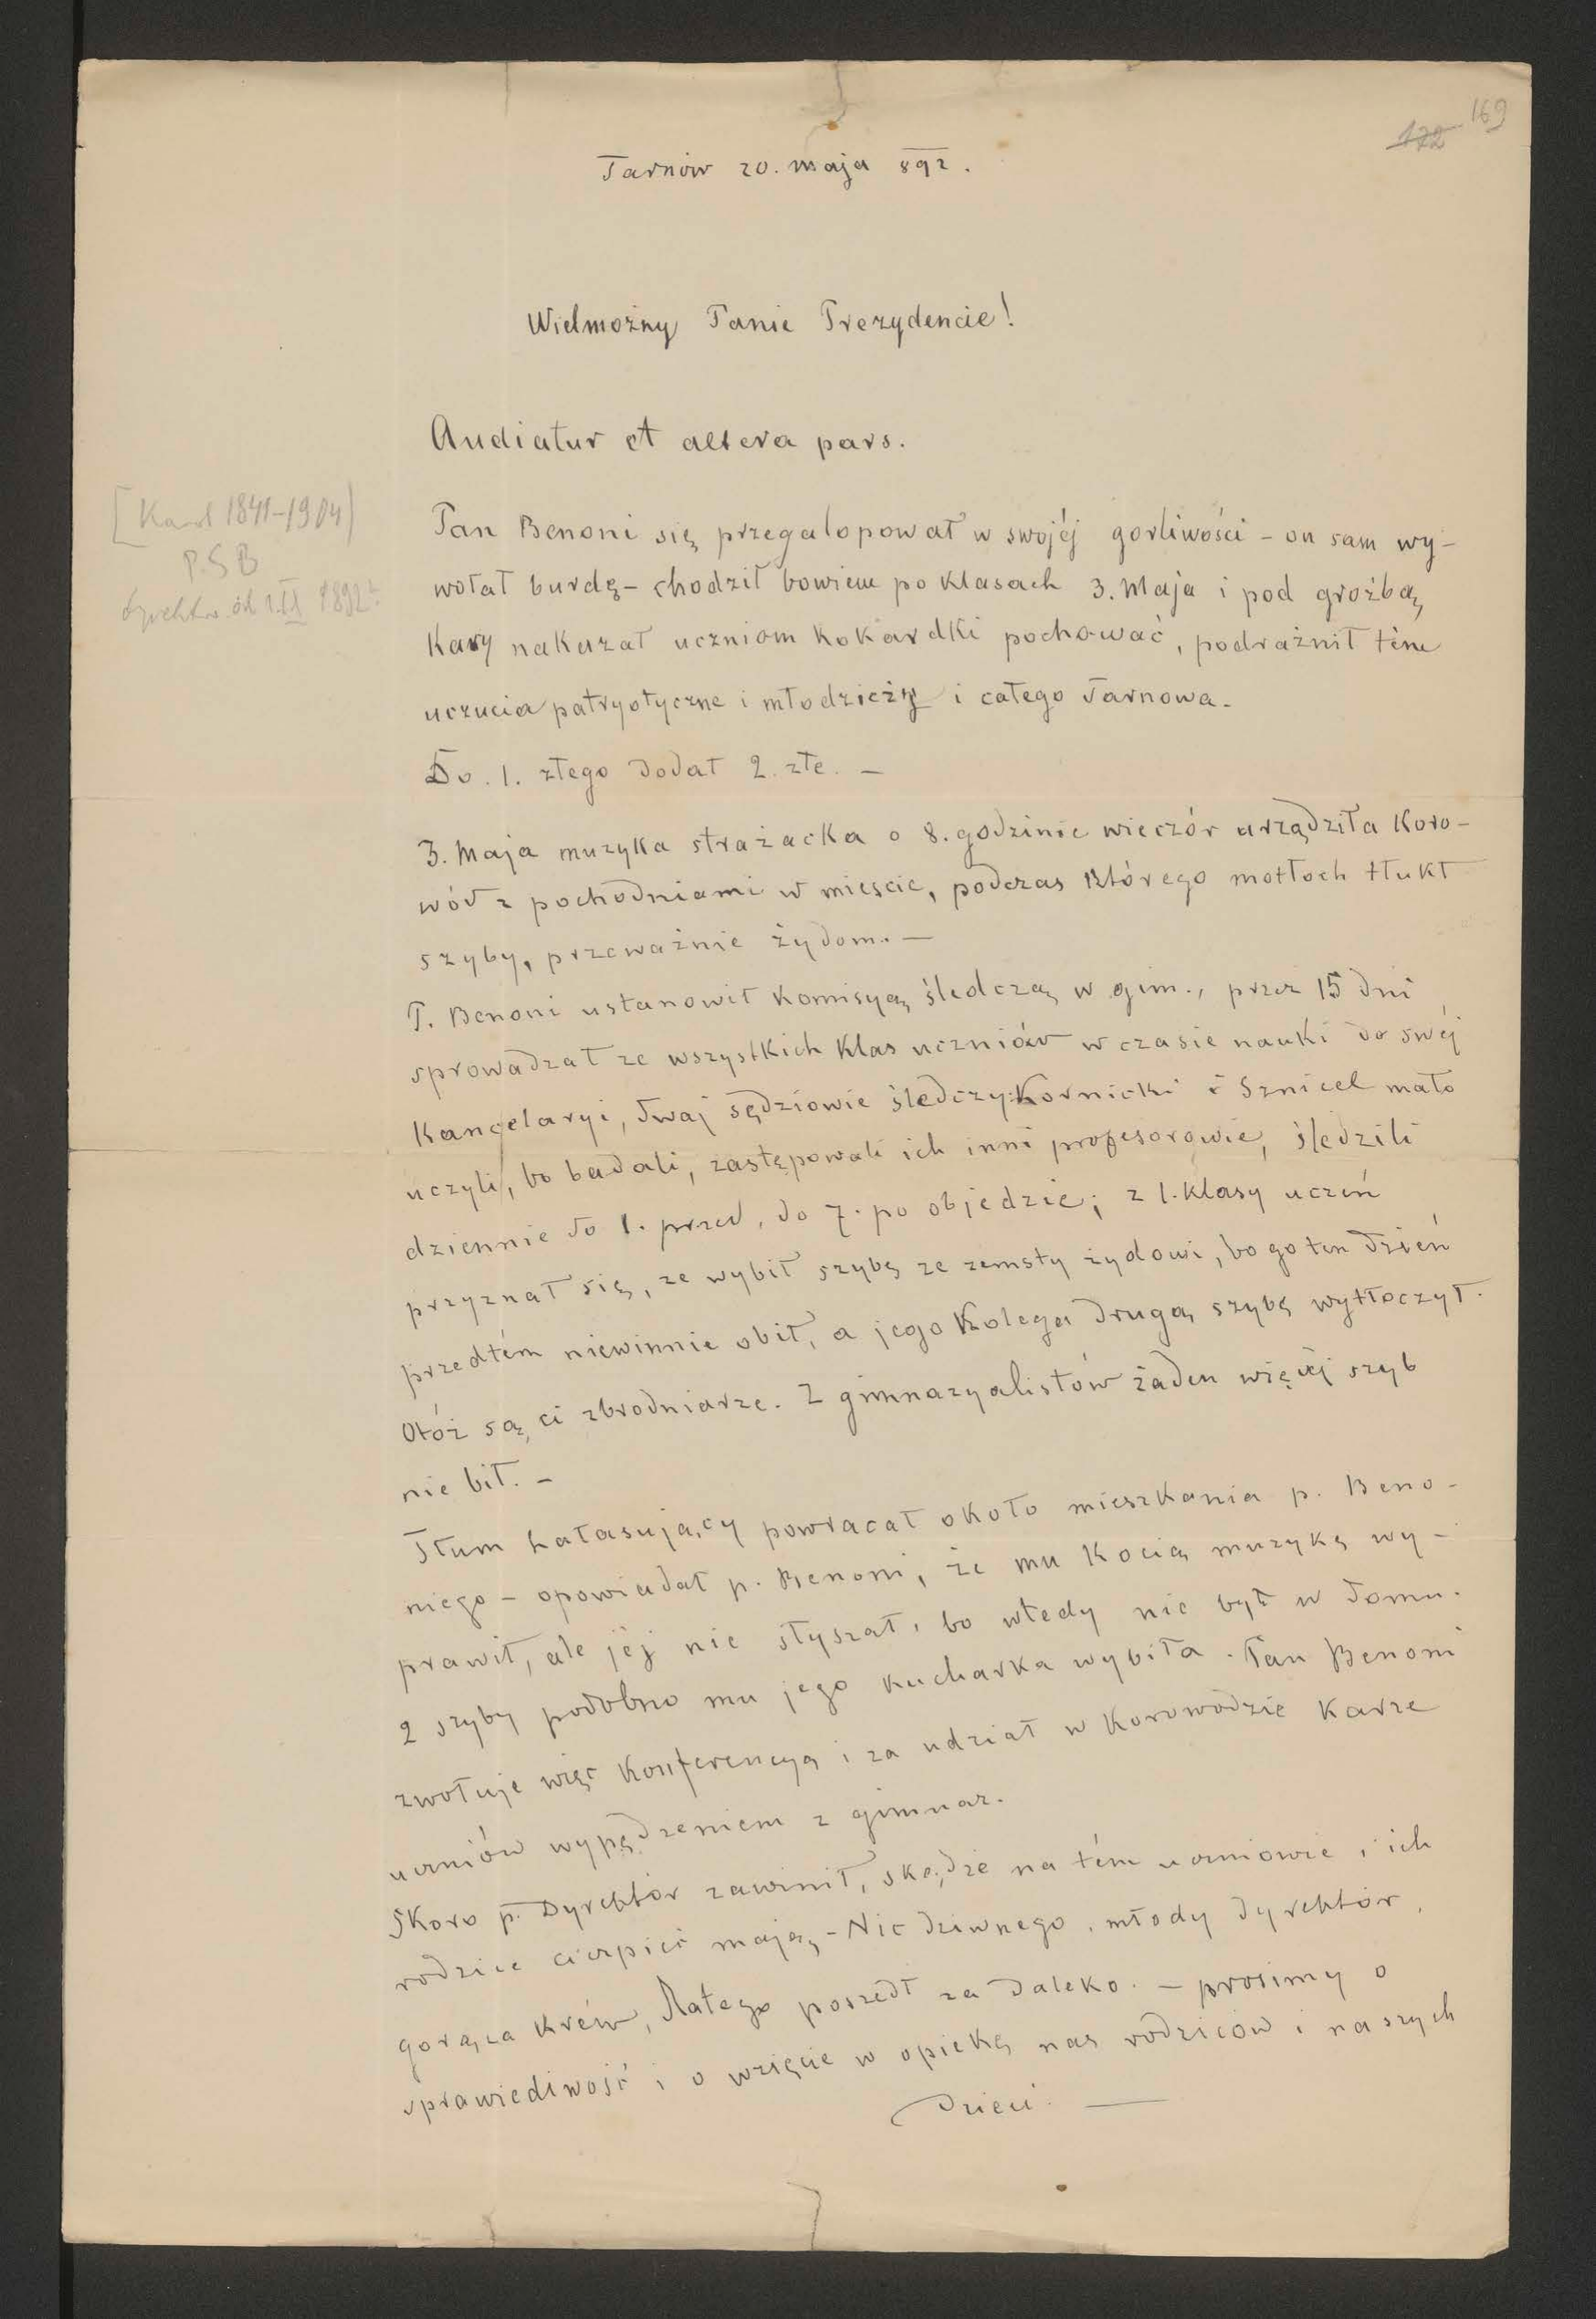 169
172
Tarnów 20. maja 892.
Wielmożny Panie Prezydencie!
Audiatur et altera pars.
[Karol 1841-1904]
P.S.B
dyrektor od 1.II 1892
Pan Benoni się przegalopował w swojéj gorliwości - on sam wy-
wołał burdę - chodził bowiem po klasach 3. Maja i pod groźbą
Kary nakazał uczniom kokardki pochować, podrażnił tém
uczucia patryotyczne i młodzieży i całego Tarnowa.
Do. 1. złego dodał 2. złe. -
3. Maja muzyka strażacka o 8. godzinie wieczór urządziła Koro-
wód z pochodniami w mieście, podczas którego motłoch tłukł
szyby, przeważnie żydom. -
P. Benoni ustanowił Komisyą śledczą w gim., przez 15 dni
sprowadzał ze wszystkich klas uczniów w czasie nauki do swéj
Kancelaryi, dwaj sędziowie śledczy: Kornicki i Sznicel mało
uczyli, bo badali, zastępowali ich inni profesorowie, śledzili
dziennie do 1. przed, do 7. po objedzie; z 1. klasy uczeń
przyznał się, ze wybił szybę ze zemsty żydowi, bo go ten dzień
przedtém niewinnie obił, a jego Kolega drugą szybę wytłoczył.
Otóż są ci zbrodniarze. Z gimnazyalistów żaden więcéj szyb
nie bił. -
Tłum hałasujący powracał około mieszkania p. Beno-
niego - opowiadał p. Benoni, że mu Kocią muzykę wy-
prawił, ale jéj nie słyszał, bo wtedy nie był w domu.
2 szyby podobno mu jego kucharka wybiła. Pan Benoni
zwołuje więc Konferencyą i za udział w Korowodzie Karze
uczniów wypędzeniem z gimnaz.
Skoro p. Dyrektor zawinił, skądże na tém uczniowie i ich
rodzice cierpieć mają - Nic dziwnego, młody dyrektor,
gorąca krew, dlatego poszedł za daleko. - prosimy o
sprawiedliwość i o wzięcie w opiekę nas rodziców i naszych
dzieci. -